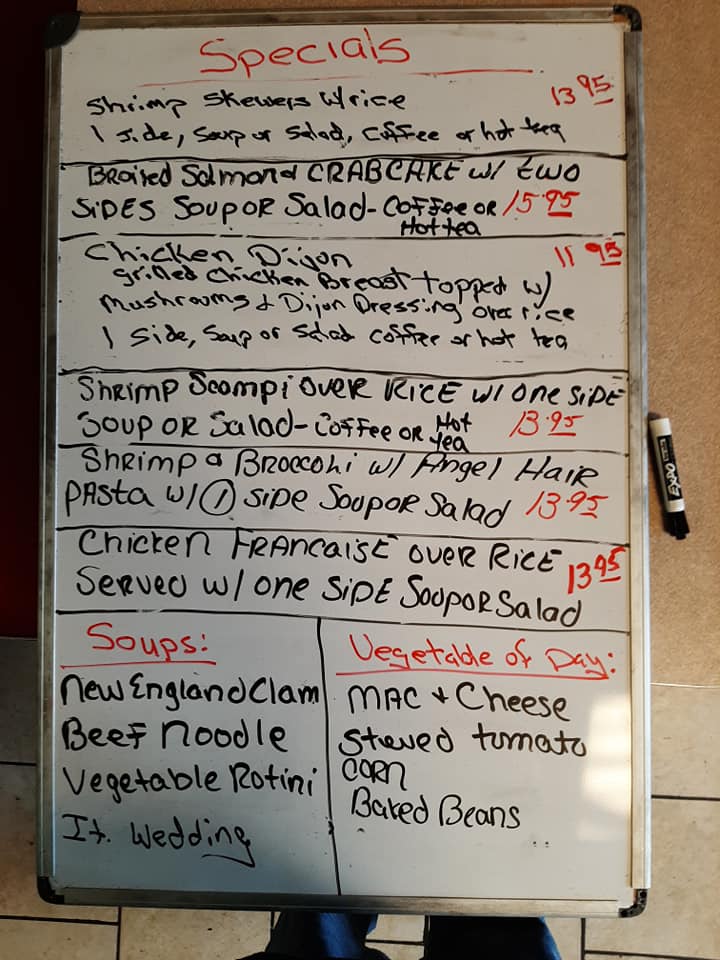 Specials
Shrimp Skewers w/rice 13 95
1 side, Soup or Salad, Coffee or hot tea
BROILED Salmon & CRABCAKE w/ two
SIDES SOUP OR Salad - COFFEE OR 15.95
Hot tea
Chicken Dijon 11 95
grilled Chicken Breast topped w/
Mushrooms & Dijon Dressing over rice
1 Side, Soup or Salad Coffee or hot tea
SHRIMP Scampi OVER RICE w/ one SIDE
SOUP OR Salad - COFFEE OR Hot tea 13.95
Shrimp & BROCCOLI w/ Angel HAIR
PASta w/ 1 SIDE SOUP OR Salad 13.95
Chicken FRANCAISE OVER RICE 13 95
SERVED w/ one SIDE SOUP OR Salad
Soups:
New England Clam
BEEF Noodle
VEgEtablE Rotini
It. Wedding
Vegetable of Day:
MAC & Cheese
Stewed tomato
CORN
Baked Beans
EXPO